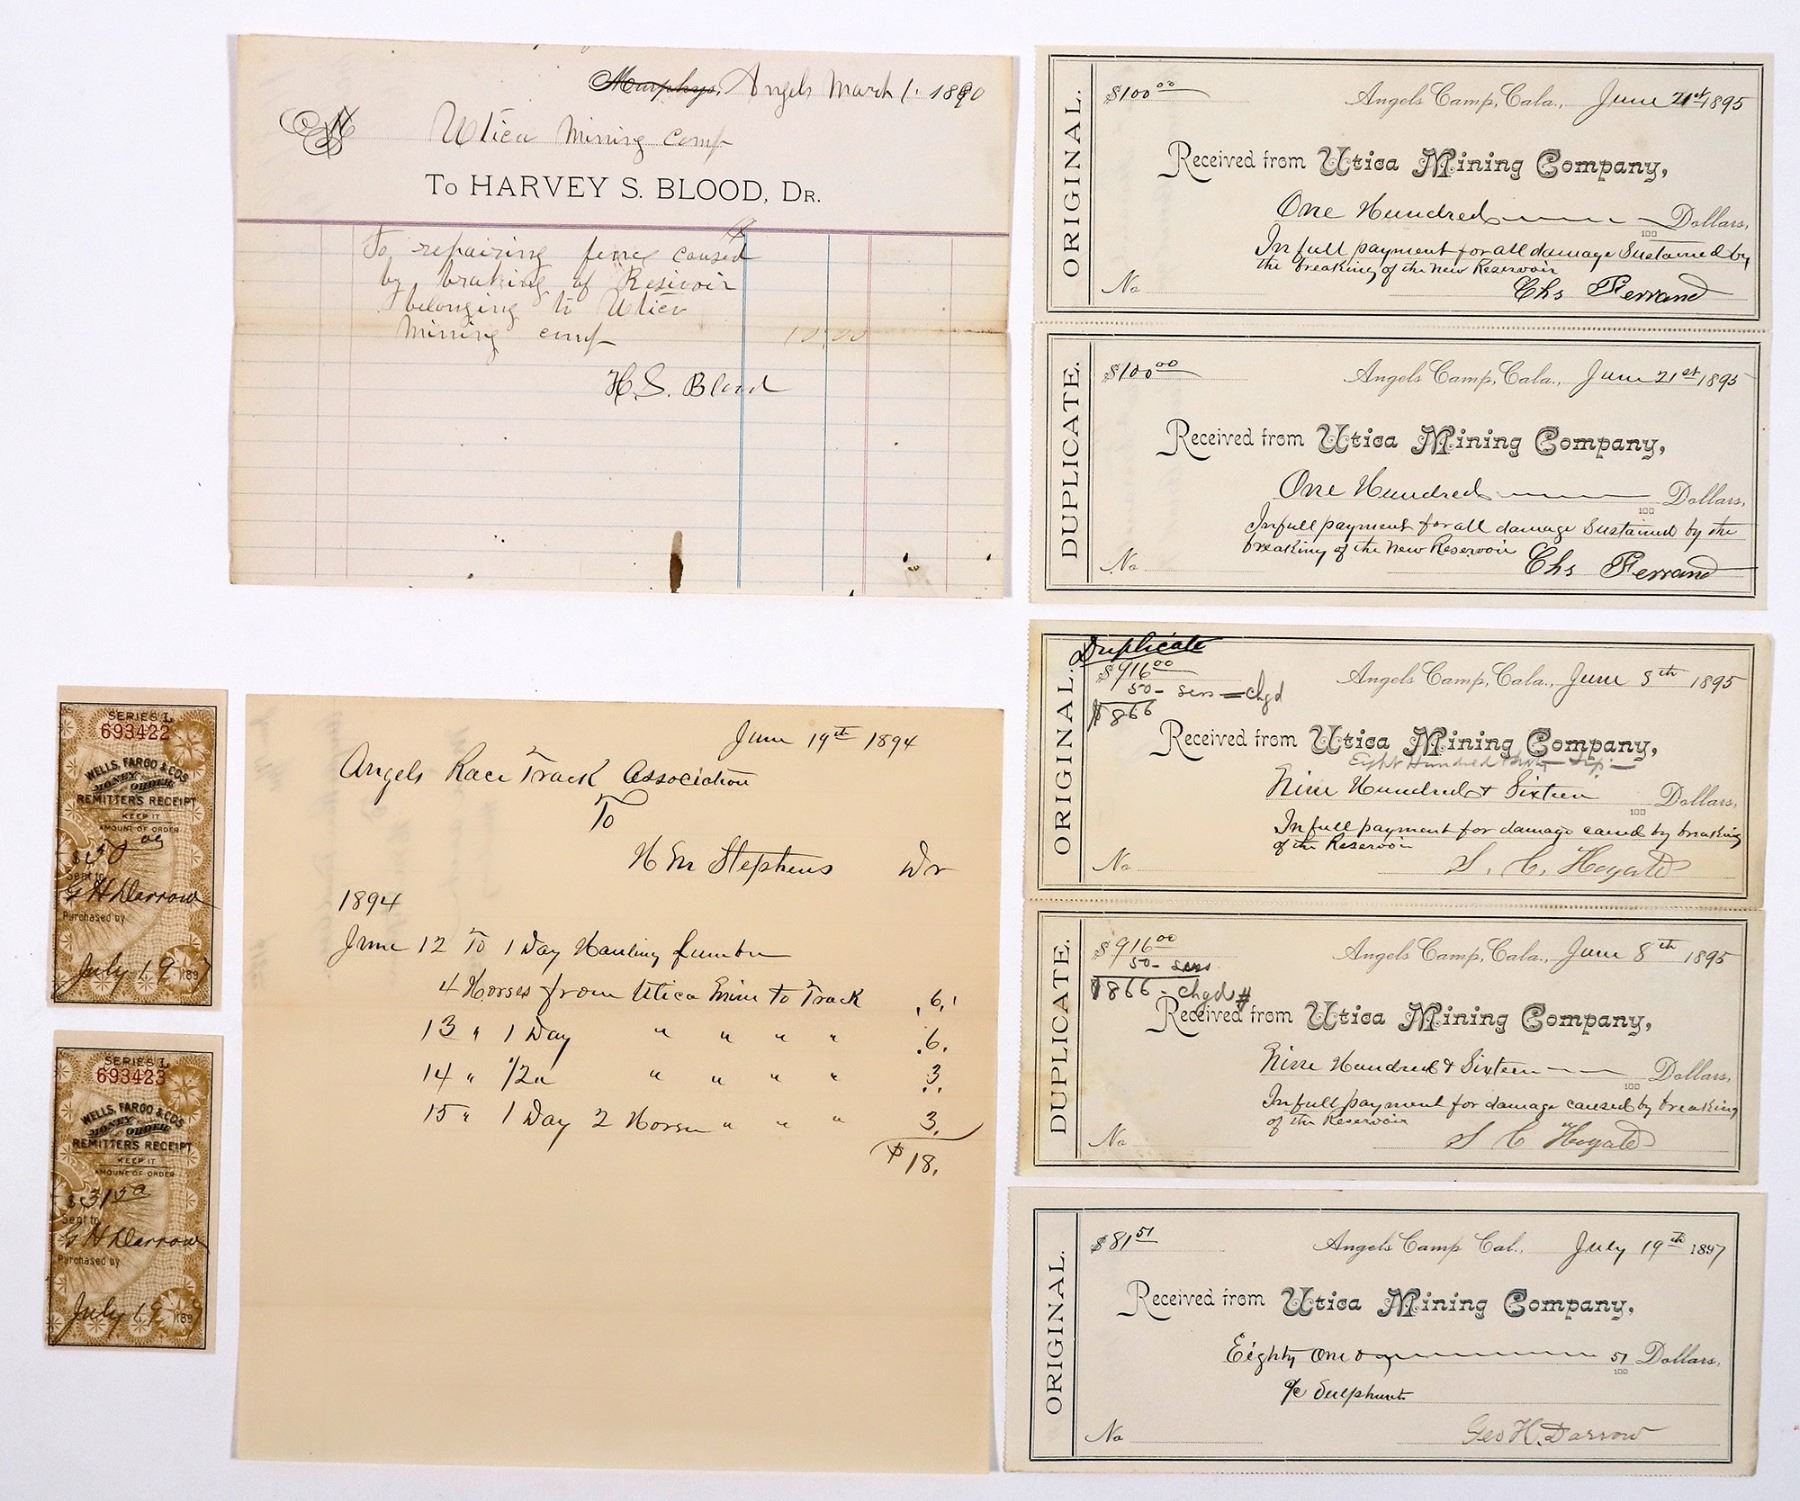 Murphys, Angels March 1. 1890
Utica Mining Comp
To HARVEY S. BLOOD, DR.
To repairing fence caused
by braking of Resivoir
belonging to Utica
Mining comp 15.00
H. S. Blood
SERIES L
693422
WELLS, FARGO & CO'S
MONEY ORDER
REMITTER'S RECEIPT
KEEP IT
AMOUNT OF ORDER
$ 50 00
Sent to
G H Darrow
Purchased by
July 19 1897
SERIES L
693423
WELLS, FARGO & CO'S
MONEY ORDER
REMITTER'S RECEIPT
KEEP IT
AMOUNT OF ORDER
$ 31 50
Sent to
G H Darrow
Purchased by
July 19 189
June 19th 1894
Angels Race Track Association
To
H M Stephens Dr
1894
June 12 To 1 Day Hauling Lumber
4 Horses from Utica Mine to Track 6.
13 " 1 Day " " " " 6.
14 " 1/2 a " " " " 3
15 " 1 Day 2 Horses " " " 3.
$18.
ORIGINAL.
$100 00
Angels Camp, Cala., June 21st 1895
Received from Utica Mining Company,
One Hundred Dollars,
100
In full payment for all damage Sustained by
the breaking of the new Reservoir
No Chs Ferrand
DUPLICATE.
$100 00
Angels Camp, Cala., June 21st 1895
Received from Utica Mining Company,
One Hundred Dollars,
100
In full payment for all damage Sustained by the
breaking of the new Reservoir
No Chs Ferrand
ORIGINAL.
Duplicate
$916 00
50- sers = chgd
$866
Angels Camp, Cala., June 8th 1895
Received from Utica Mining Company,
Eight Hundred Sixty Six
Nine Hundred & Sixteen Dollars,
100
In full payment for damage caused by breaking
of the Reservoir
No S. C. Hogate
DUPLICATE.
$916 00
50- sers
$866 - chgd #
Angels Camp, Cala., June 8th 1895
Received from Utica Mining Company,
Nine Hundred & Sixteen Dollars,
100
In full payment for damage caused by breaking
of the Reservoir
No S C Hogate
ORIGINAL.
$81 51
Angels Camp Cal., July 19th 1897
Received from Utica Mining Company,
Eighty One 51 Dollars,
100
a/c Sulphurets
No Geo H. Darrow